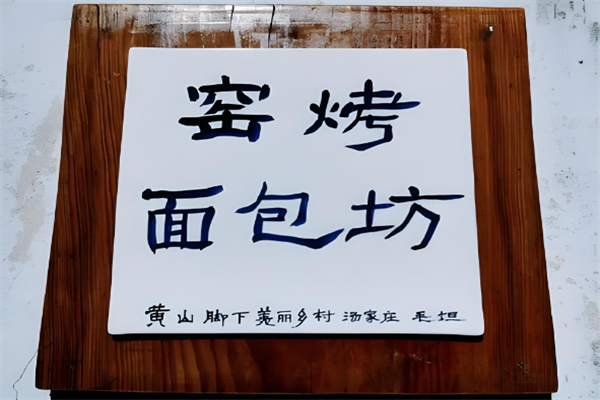 窑烤
面包坊
黄山脚下美丽乡村 汤家庄 毛坦